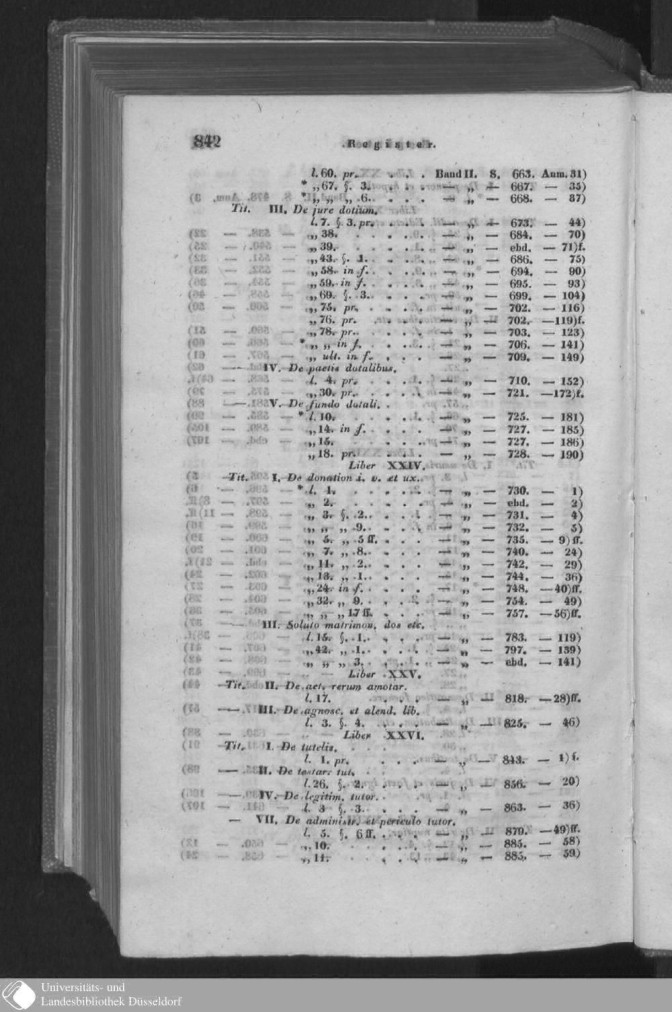 842 Register.
l. 60. pr. . . . . Band II. S. 663. Anm. 31)
* „ 67. §. 3. . . . . — „ — 667. — 35)
* „ „ „ 6. . . . . — „ — 668. — 37)
Tit. III. De jure dotium.
l. 7. §. 3. pr. . . . — „ — 673. — 44)
„ 38. . . . . . — „ — 684. — 70)
„ 39. . . . . . — „ — ebd. — 71)f.
„ 43. §. 1. . . . . — „ — 686. — 75)
„ 58. in f. . . . . — „ — 694. — 90)
„ 59. in f. . . . . — „ — 695. — 93)
„ 69. §. 3. . . . . — „ — 699. — 104)
„ 75. pr. . . . . — „ — 702. — 116)
„ 76. pr. . . . . — „ — 702. — 119)f.
„ 78. pr. . . . . — „ — 703. — 123)
* „ „ in f. . . . . — „ — 706. — 141)
„ ult. in f. . . . — „ — 709. — 149)
— IV. De pactis dotalibus.
l. 4. pr. . . . . — „ — 710. — 152)
„ 30. pr. . . . . — „ — 721. — 172)f.
— V. De fundo dotali.
* l. 10. . . . . . — „ — 725. — 181)
„ 14. in f. . . . . — „ — 727. — 185)
„ 15. . . . . . — „ — 727. — 186)
„ 18. pr. . . . . — „ — 728. — 190)
Liber XXIV.
Tit. I. De donation i. v. et ux.
* l. 1. . . . . . — „ — 730. — 1)
„ 2. . . . . . — „ — ebd. — 2)
„ 3. §. 2. . . . . — „ — 731. — 4)
„ „ „ 9. . . . . — „ — 732. — 5)
„ 5. „ 5 ff. . . . — „ — 735. — 9)ff.
„ 7. „ 8. . . . . — „ — 740. — 24)
„ 11. „ 2. . . . . — „ — 742. — 29)
„ 13. „ 1. . . . . — „ — 744. — 36)
„ 24. in f. . . . . — „ — 748. — 40)ff.
„ 32. „ 9. . . . . — „ — 754. — 49)
„ „ „ 17 ff. . . . — „ — 757. — 56)ff.
— III. Soluto matrimon. dos etc.
l. 15. §. 1. . . . . — „ — 783. — 119)
„ 42. „ 1. . . . . — „ — 797. — 139)
„ „ „ 3. . . . . — „ — ebd. — 141)
Liber XXV.
Tit. II. De act. rerum amotar.
l. 17. . . . . . — „ — 818. — 28)ff.
— III. De agnosc. et alend. lib.
l. 3. §. 4. . . . . — „ — 825. — 46)
Liber XXVI.
Tit. I. De tutelis.
l. 1. pr. . . . . — „ — 843. — 1) f.
— II. De testar. tut.
l. 26. §. 2. . . . . — „ — 856. — 20)
— IV. De legitim. tutor.
l. 3 §. 3. . . . . — „ — 863. — 36)
— VII. De administr. et periculo tutor.
l. 5. §. 6 ff. . . . — „ — 879. — 49)ff.
„ 10. . . . . . — „ — 885. — 58)
„ 11. . . . . . — „ — 885. — 59)
Universitäts- und
Landesbibliothek Düsseldorf